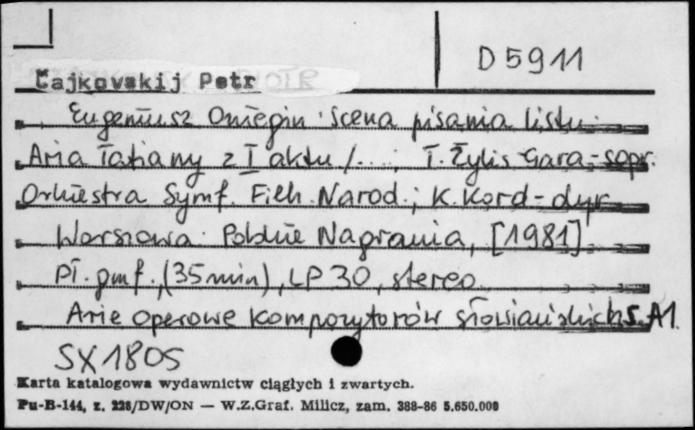 D5911
Čajkovskij Petr
Eugeniusz Oniegin : Scena pisania listu :
Aria Tatiany z I aktu / ... ; T. Żylis-Gara - sopr.
Orkiestra Symf. Filh. Narod. ; K. Kord - dyr.
Warszawa : Polskie Nagrania, [1981]
Pł. gmf., (35 min), LP 30, stereo
Arie operowe kompozytorów słowiańskich S. A1.
SX1805
Karta katalogowa wydawnictw ciągłych i zwartych.
Pu-B-144, z. 228/DW/ON — W.Z.Graf. Milicz, zam. 388-86 5.650.000